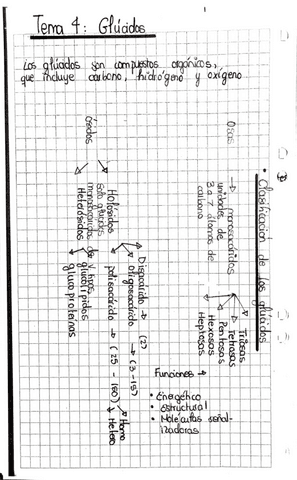 Tema 4: Glúcidos
Los glúcidos son compuestos orgánicos,
que incluye carbono, hidrógeno y oxígeno
• Clasificación de los glúcidos
Osas
→ monosacáridos
unidades de
3 a 7 átomos de
carbono
Triosas
Tetrosas
Pentosas
Hexosas
Heptosas
Ósidos
Holósidos
solo glúcidos
Disacárido → (2)
Oligosacárido → (3-15)
polisacárido → (25-150)
Homo
Hetero
Heterósidos
monosacáridos de
glucolípidos
glucoproteínas
Funciones →
• Energético
• estructural
• Moléculas señal-
izadoras